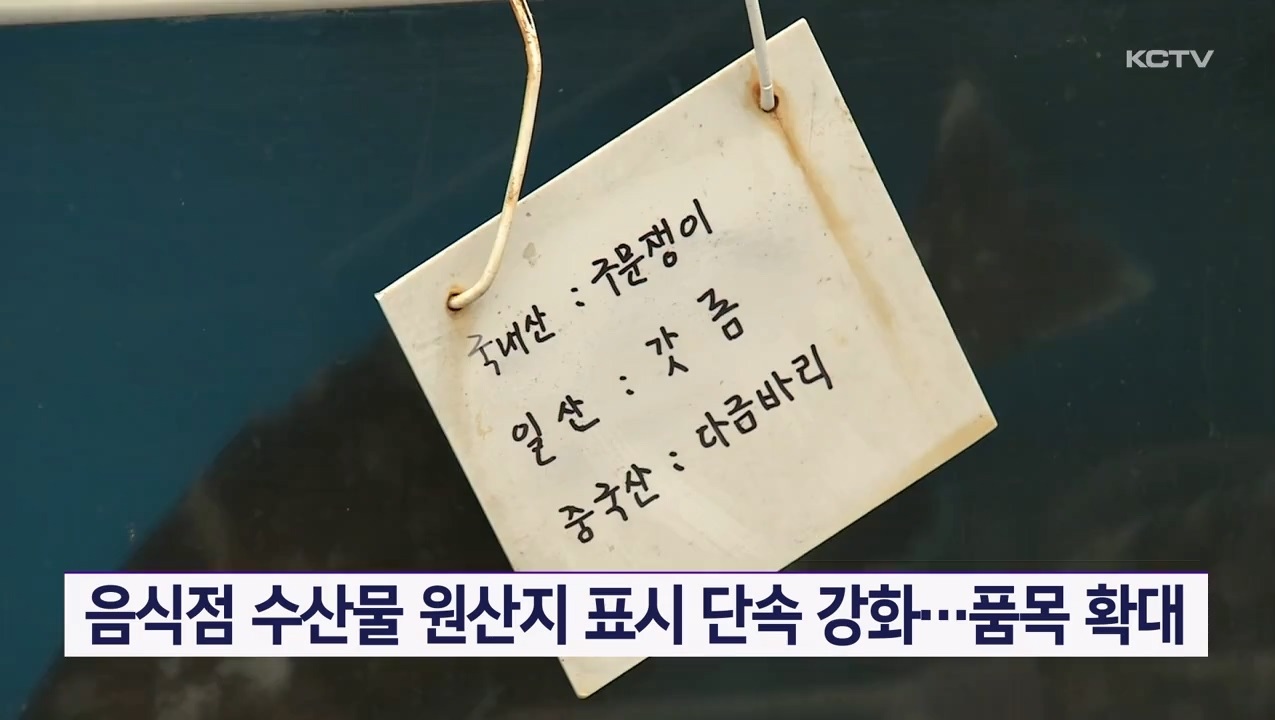 KCTV
국내산 : 구문쟁이
일산 : 갓돔
중국산 : 다금바리
음식점 수산물 원산지 표시 단속 강화…품목 확대